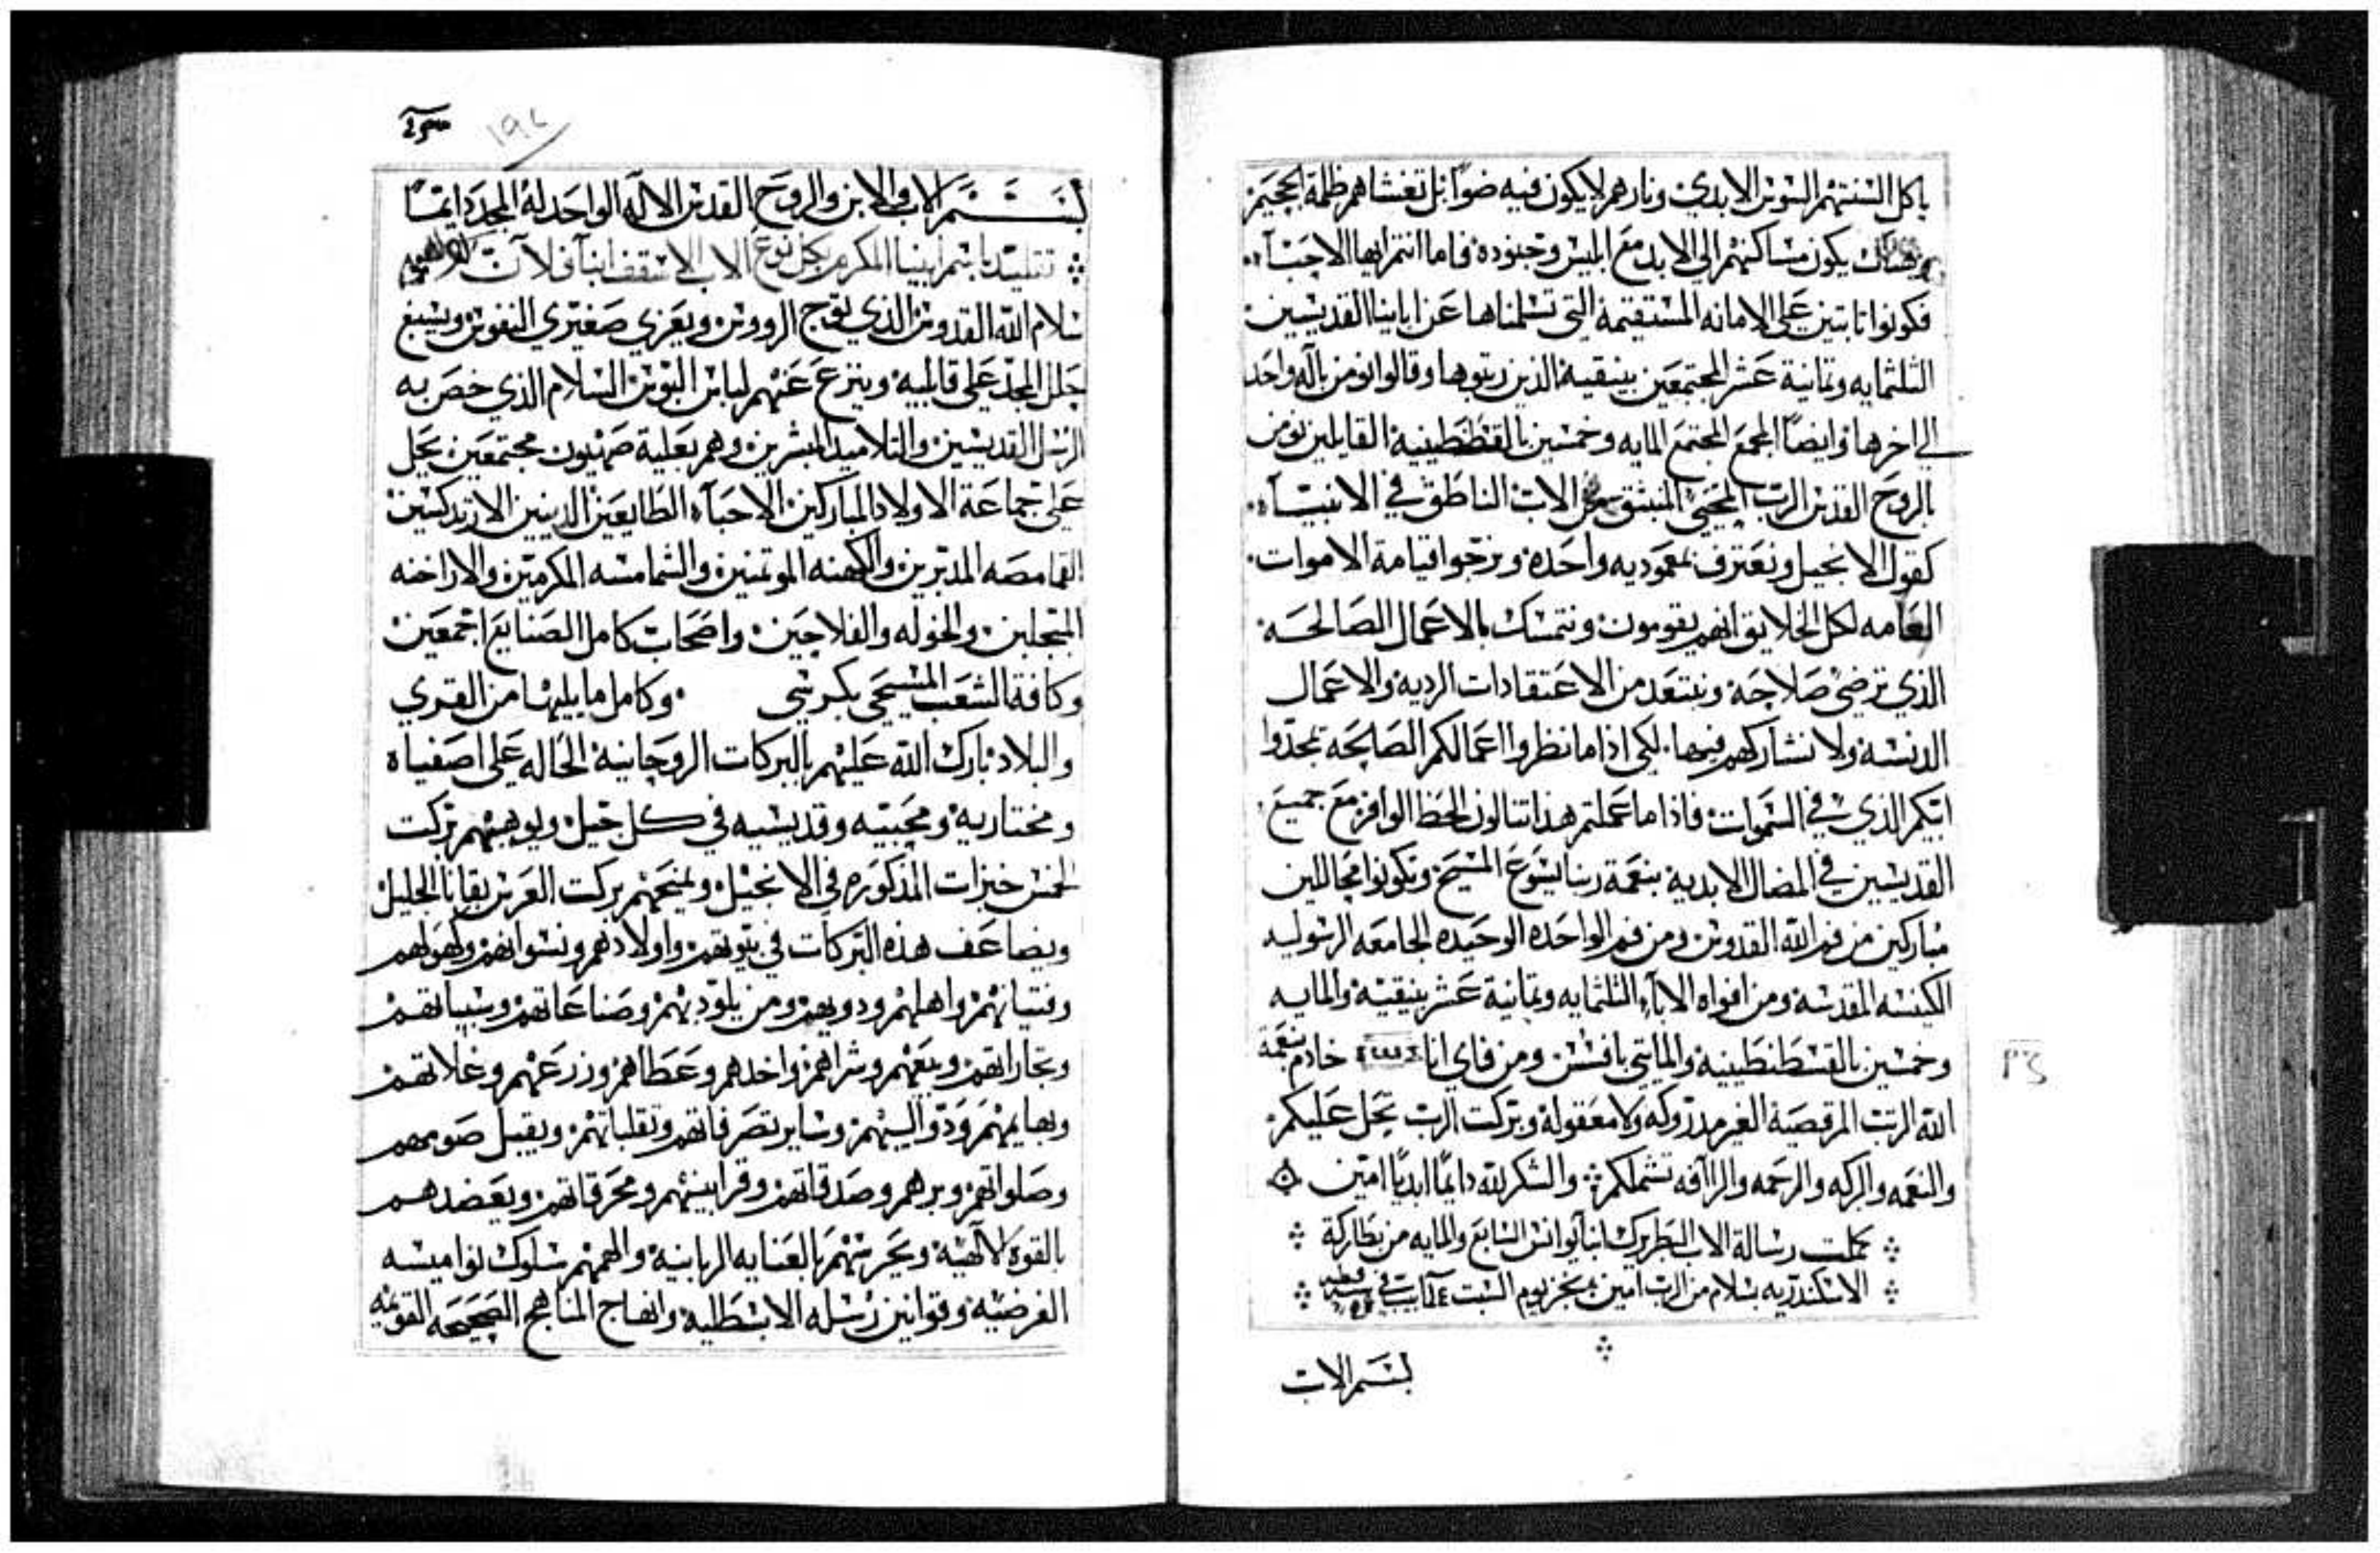 ياكل السنتهم السوس الابدي ونارهم لا يكون فيه ضوًا بل تغشاهم ظلمة الجحيم
هناك يكون مساكنهم الي الابد مع ابليس وجنوده فاما انتم ايها الاحباء
فكونوا تابتين علي الامانه المستقيمة التي تسلمناها عن اباينا القديسين
التلتمايه وتمانية عشر المجتمعين بينقية الذين رتبوها وقالوا نومن باله واحد
الي اخرها وايضًا المجمع المجتمع المايه وخمسين بالقسطنطينية القايلين نومن
بالروح القدس الرب المحيي المنبثق من الاب الناطق في الانبياء
كقول الانجيل ونعترف بمعموديه واحده ونرجوا قيامة الاموات
العامه لكل الخلايق انهم يقومون ونتمسك بالاعمال الصالحه
الذي ترضي صلاحه ونبتعد من الاعتقادات الرديه والاعمال
الدنسة ولا نشاركهم فيها لكي اذا ما نظروا اعمالكم الصالحه يمجدوا
ابيكم الذي في السموات فاذا ما عملتم هذا تنالون الحظ الوافر مع جميع
القديسين في المضال الابدية بنعمة ربنا يسوع المسيح وتكونوا محاللين
مباركين من فم الله القدوس ومن فم الواحده الوحيده الجامعه الرسوليه
الكنيسه المقدسة ومن افواه الاباء التلتمايه وتمانية عشر بنيقية والمايه
وخمسين بالقسطنطينية والمايتي بافسس ومن فاي انا خادم بنعمة
الله الرتب المرقصية الغير مدروكه ولا معقولة وبركت الرب تحل عليكم
والنعمه والبركه والرحمه والراافه تشملكم والشكر لله دايمًا ابديًا امين
كملت رسالة الاب البطريرك انبا يوانس السابع والمايه من بطاركة
الاسكندريه بسلام من الرب امين نجز يوم السبت ٤
بسم الاب
١٩٤
بسم الاب والابن والروح القدس الاله الواحد له المجد دايمًا
تقليد باسم ابينا المكرم بكل نوع الاب الاسقف انبا فلان
سلام الله القدوس الذي توج الرووس ويعزي صغيري النفوس ويسبغ
حلل المجد علي قابليه وينزع عنهم لباس البوس السلام الذي خص به
الرسل القديسين والتلاميد المبشرين وهم بعلية صهيون مجتمعين يحل
علي جماعة الاولاد المباركين الاحباء الطايعين الدينين الارتدكسين
القمامصه المدبرين والكهنه الموتمنين والشمامسه المكرمين والاراخنه
المبجلين والخوله والفلاحين واصحاب كامل الصنايع اجمعين
وكافة الشعب المسيحي بكرسي وكامل ما يليها من القري
والبلاد بارك الله عليهم بالبركات الروحانية الحاله علي اصفياه
ومختاريه ومحبيه وقديسيه في كل جيل ويوهبهم بركت
الخمس خبزات المذكوره في الانجيل ويمنحهم بركت العرس بقانا الجليل
ويضاعف هذه البركات في بيوتهم واولادهم ونسوانهم وكهولهم
وفتيانهم واهلهم ودويهم ومن يلود بهم وصناعاتهم وسبباتهم
وتجاراتهم وبيعهم وشراهم واخدهم وعطاهم وزرعهم وغلاتهم
وبهايمهم ودواليبهم وساير تصرفاتهم وتقلباتهم ويقبل صومهم
وصلواتهم وبرهم وصدقاتهم وقرابينهم ومحرقاتهم ويعضدهم
بالقوة الالهية ويحرسهم بالعنايه الربانية والهمهم سلوك نواميسه
الفرضية وقوانين رسله الابسطلية وانهاج المناهج الصحيحه القويمه